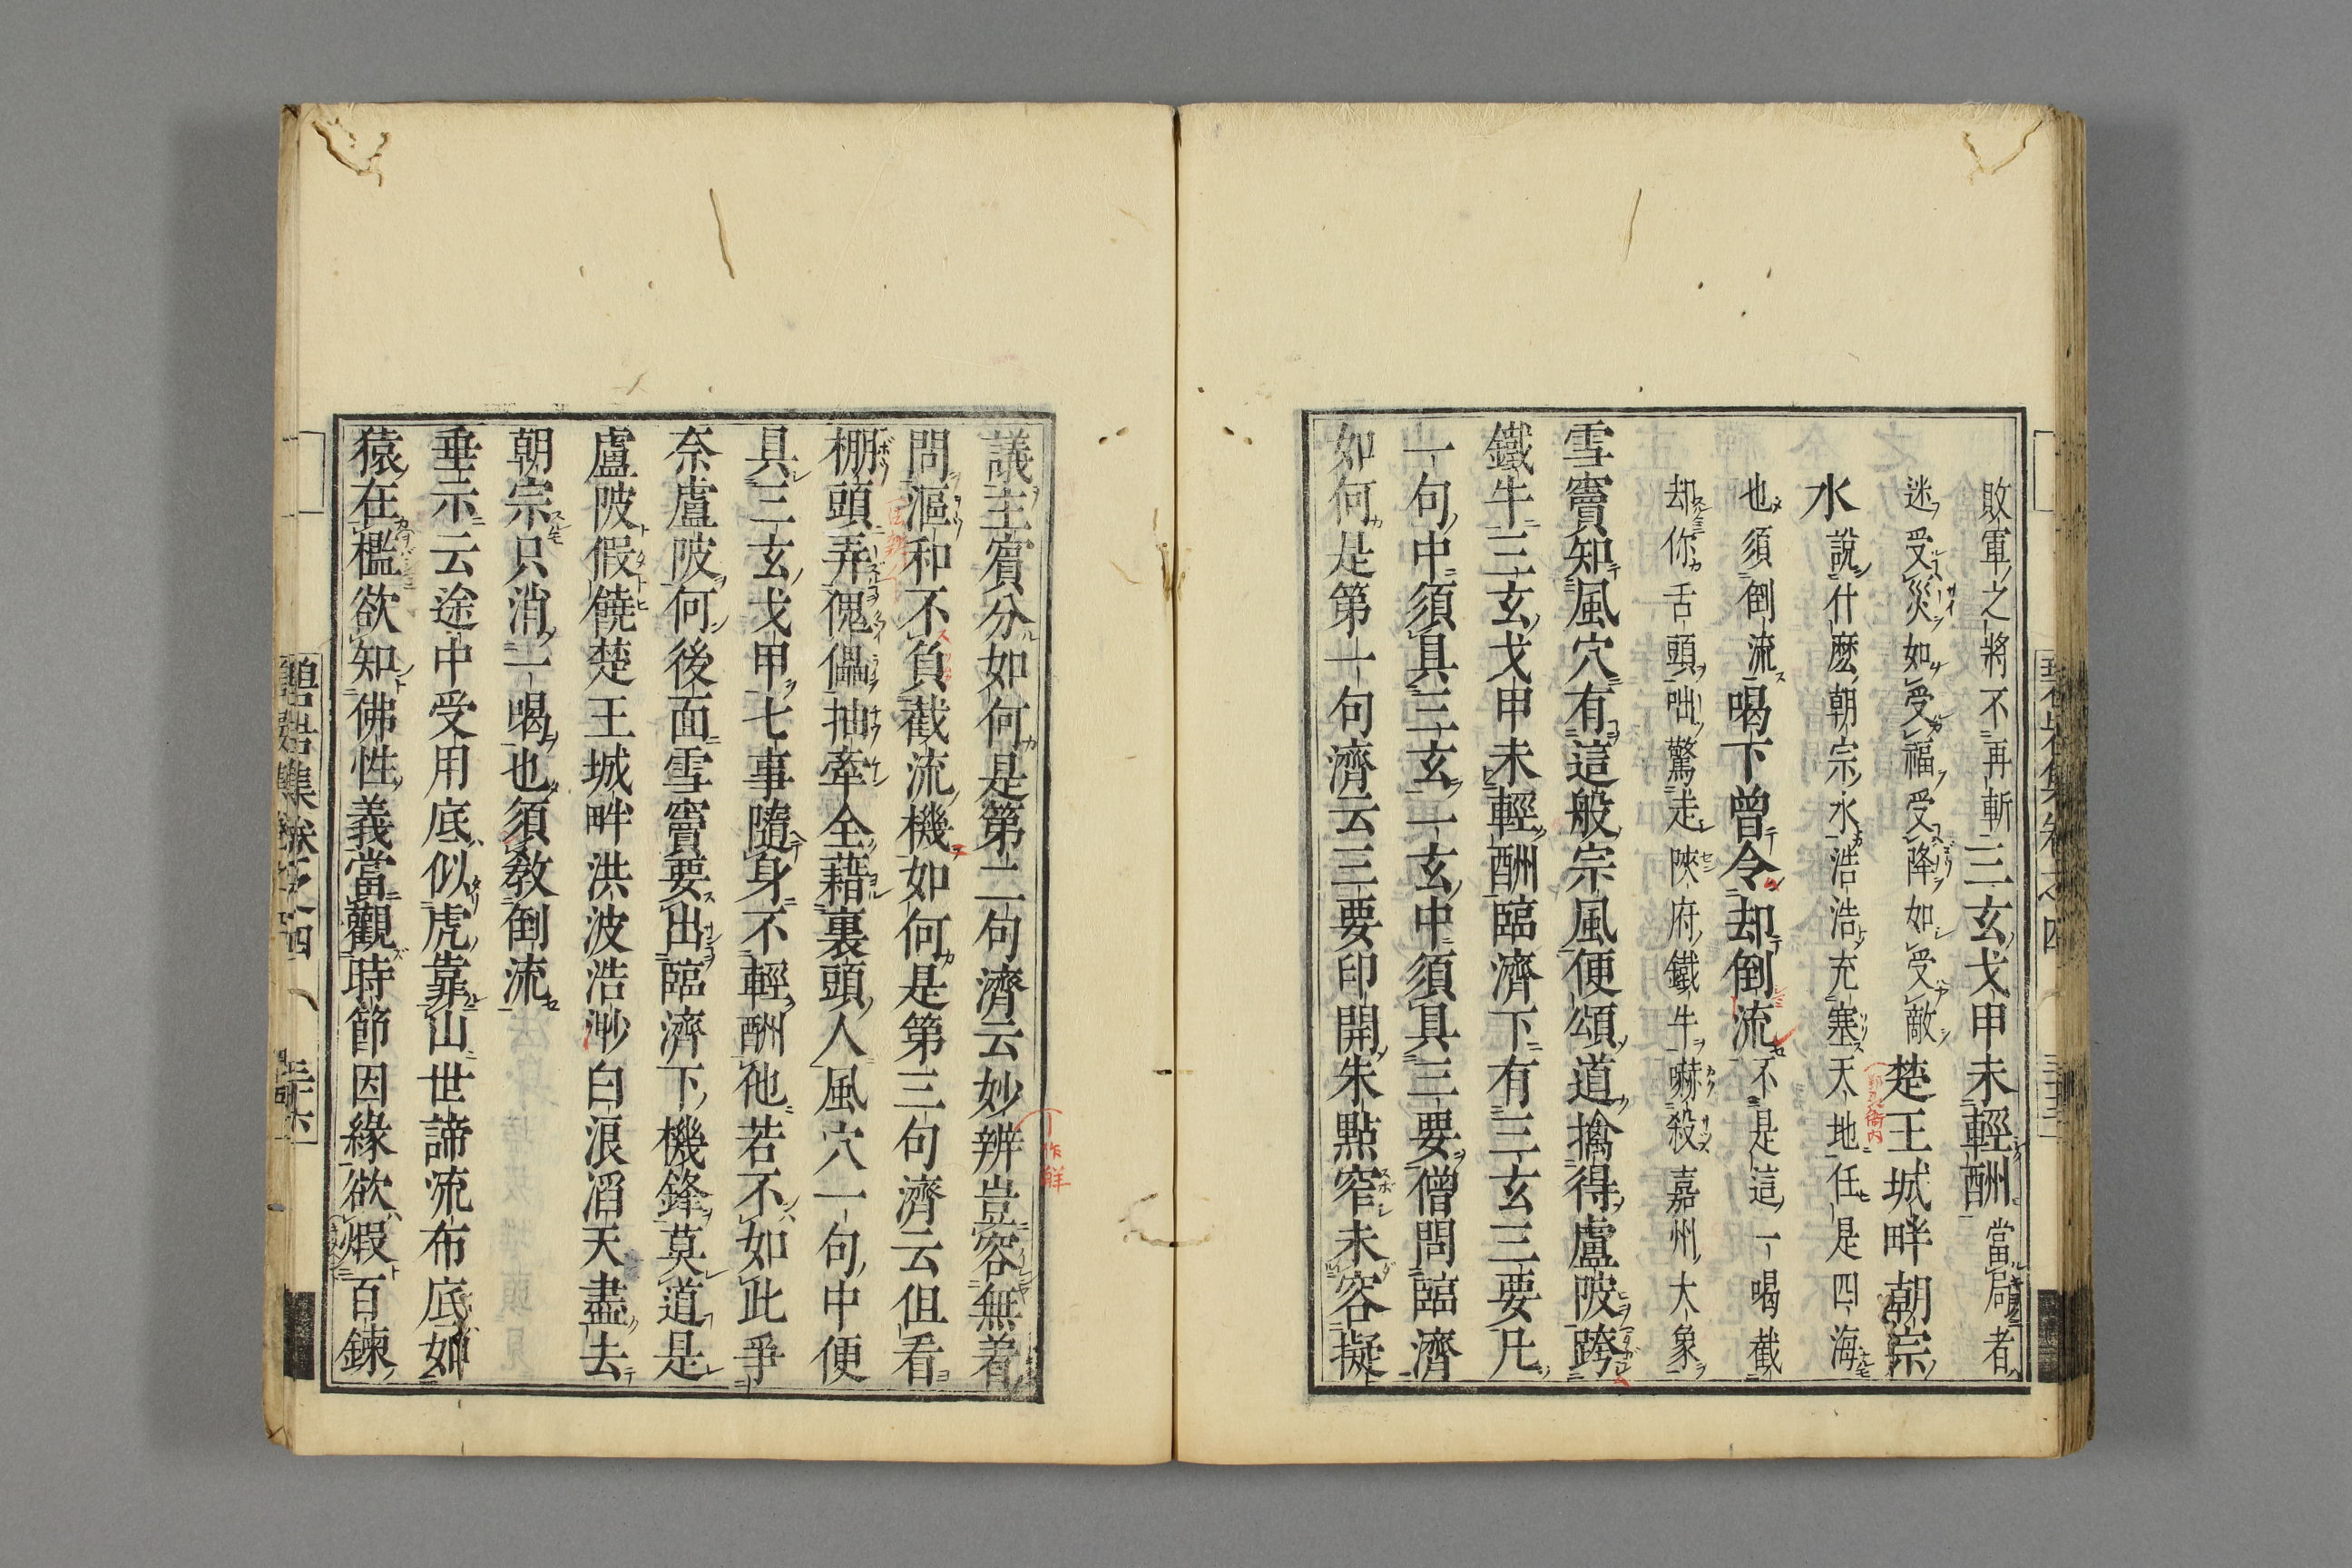 敗軍之將不再斬三玄戈甲未輕酬當局者
迷受災如受福受降如受敵楚王城畔朝宗
水說什麼朝宗水浩浩充塞天地任是四海
也須倒流喝下曾令却倒流不是這一喝截
却你舌頭咄驚走陝府鐵牛嚇殺嘉州大象
雪竇知風穴有這般宗風便頌道擒得盧陂跨
鐵牛三玄戈甲未輕酬臨濟下有三玄三要凡
一句中須具三玄一玄中須具三要僧問臨濟
如何是第一句濟云三要印開朱點窄未容擬
議主賓分如何是第二句濟云妙辨豈容無着
問漚和不負截流機如何是第三句濟云但看
棚頭弄傀儡抽牽全藉裏頭人風穴一句中便
具三玄戈甲七事隨身不輕酬他若不如此爭
奈盧陂何後面雪竇要出臨濟下機鋒莫道是
盧陂假饒楚王城畔洪波浩渺白浪滔天盡去
朝宗只消一喝也須敎倒流
垂示云途中受用底似虎靠山世諦流布底如
猿在檻欲知佛性義當觀時節因緣欲煆百鍊
碧岩集卷之四
作解